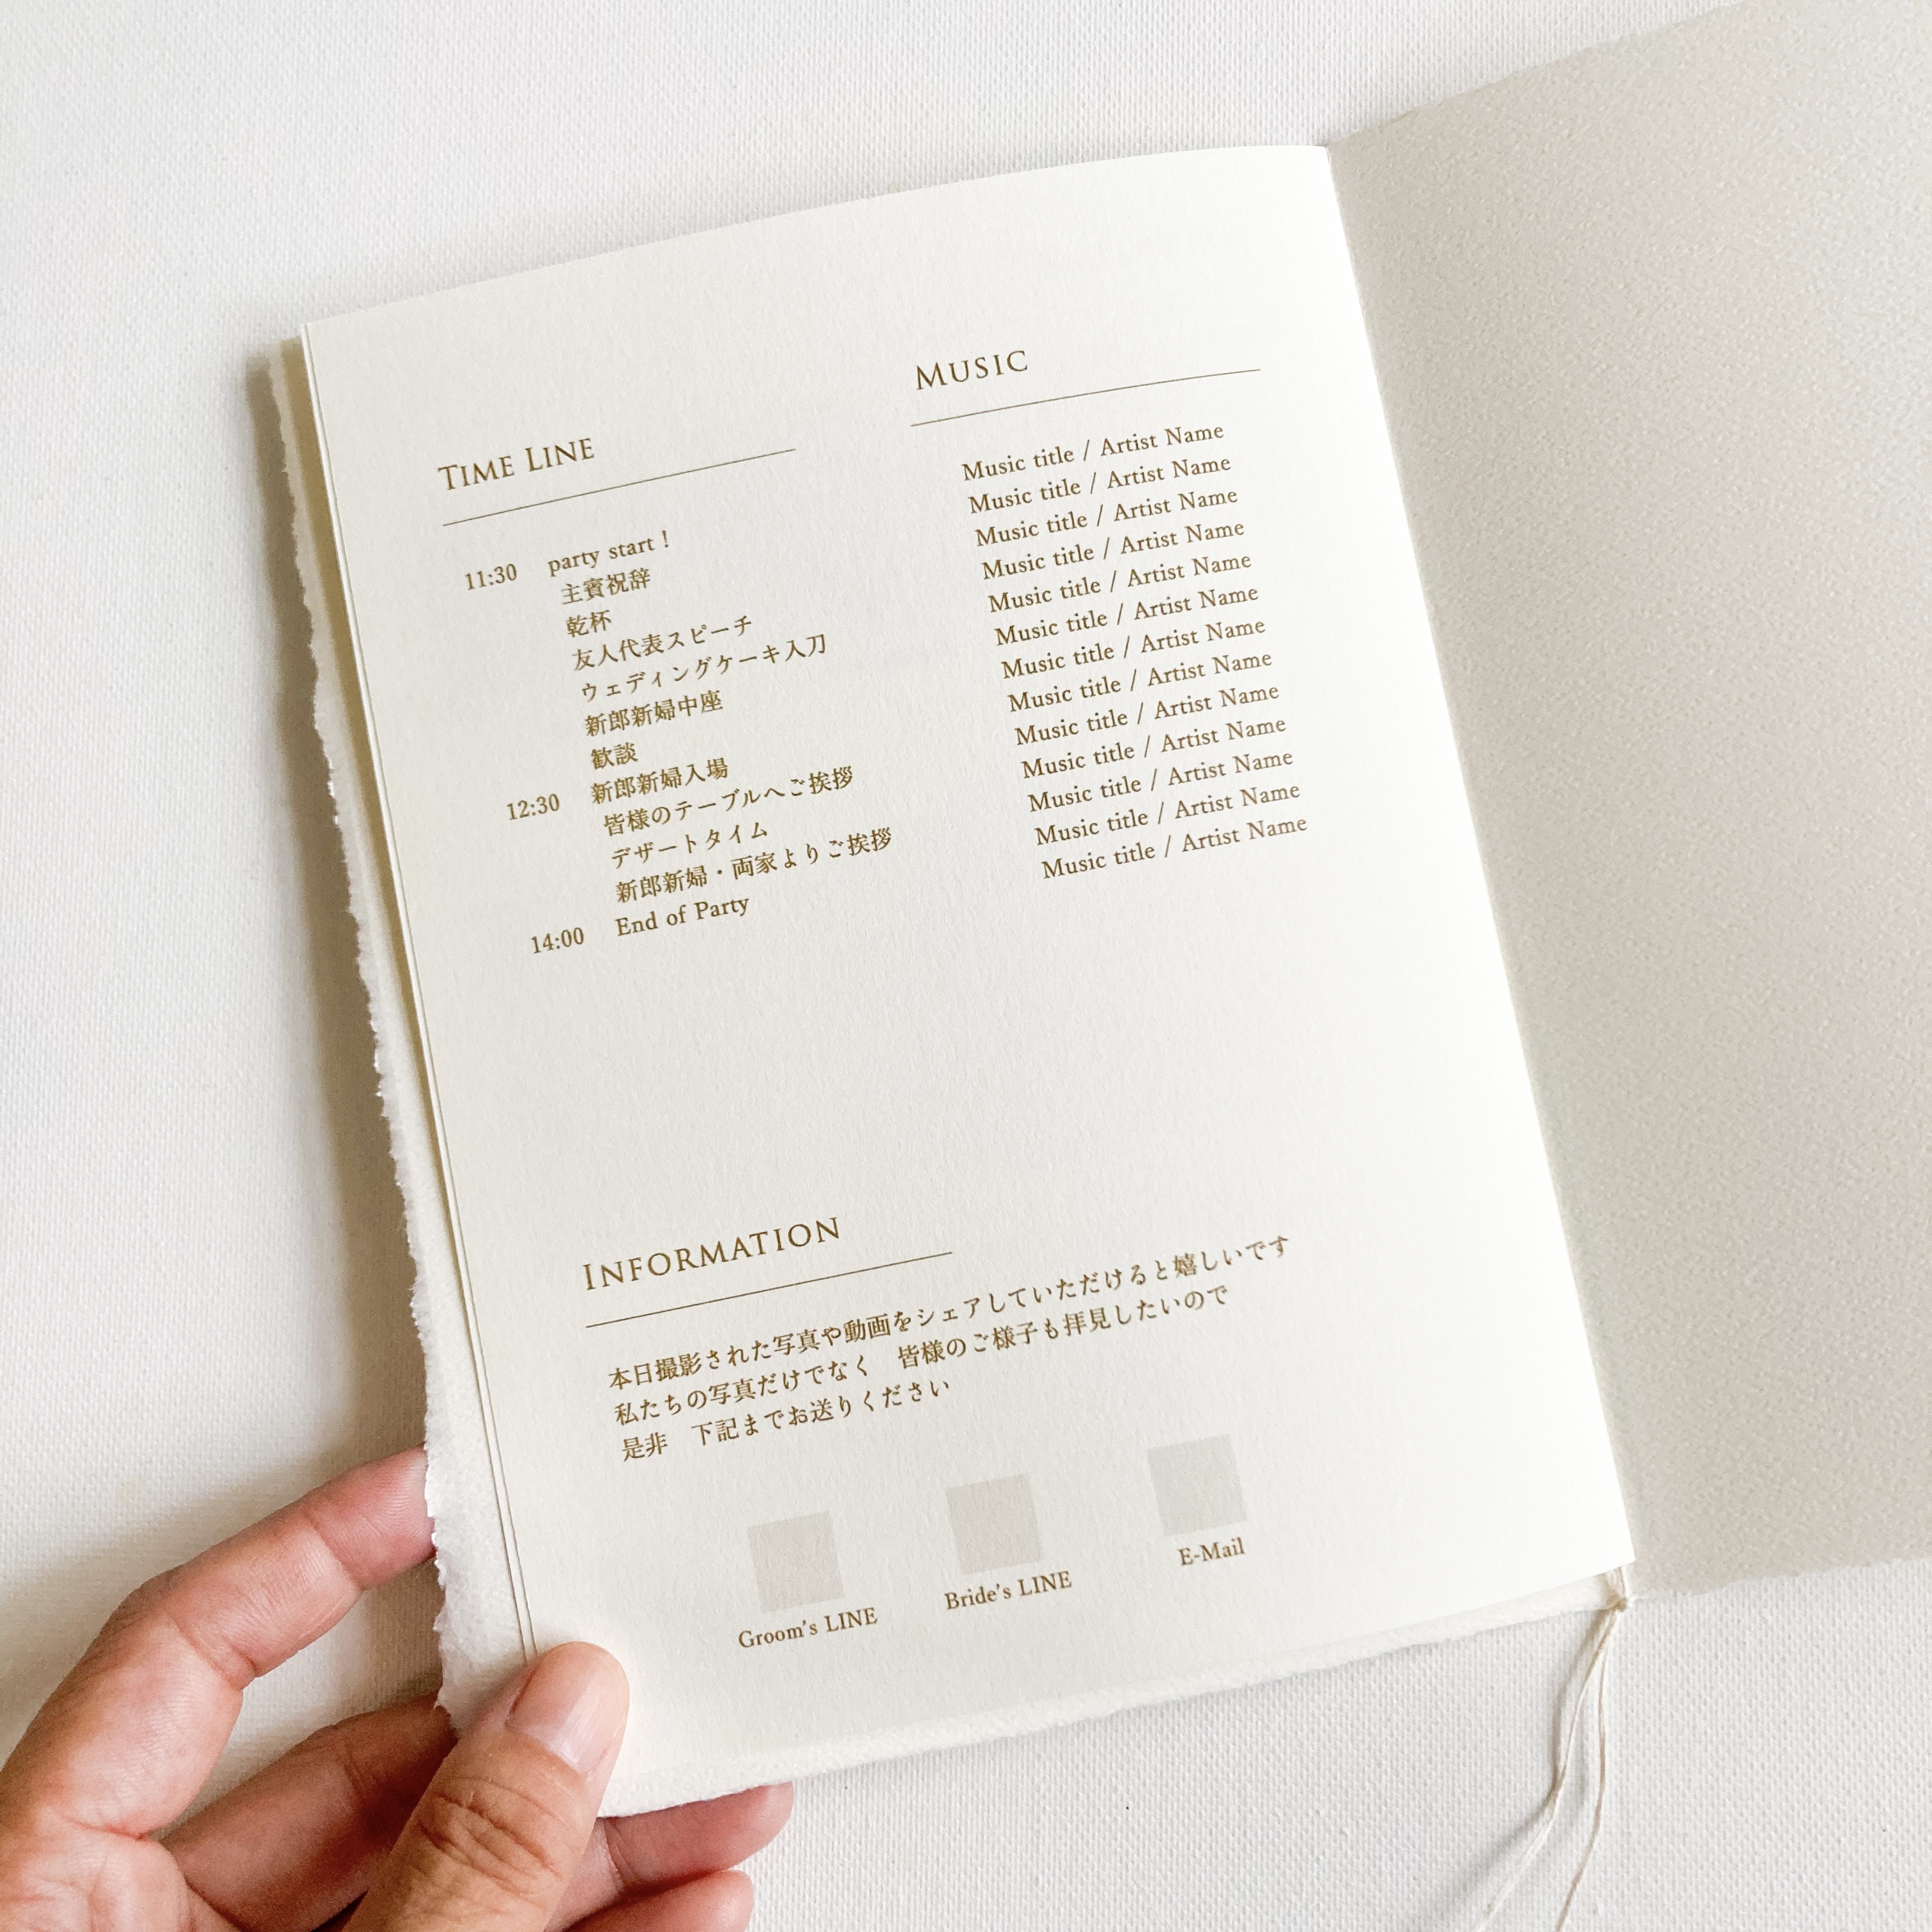 TIME LINE
11:30 party start !
主賓祝辞
乾杯
友人代表スピーチ
ウェディングケーキ入刀
新郎新婦中座
歓談
12:30 新郎新婦入場
皆様のテーブルへご挨拶
デザートタイム
新郎新婦・両家よりご挨拶
14:00 End of Party
MUSIC
Music title / Artist Name
Music title / Artist Name
Music title / Artist Name
Music title / Artist Name
Music title / Artist Name
Music title / Artist Name
Music title / Artist Name
Music title / Artist Name
Music title / Artist Name
Music title / Artist Name
Music title / Artist Name
Music title / Artist Name
Music title / Artist Name
INFORMATION
本日撮影された写真や動画をシェアしていただけると嬉しいです
私たちの写真だけでなく　皆様のご様子も拝見したいので
是非　下記までお送りください
Groom's LINE
Bride's LINE
E-Mail